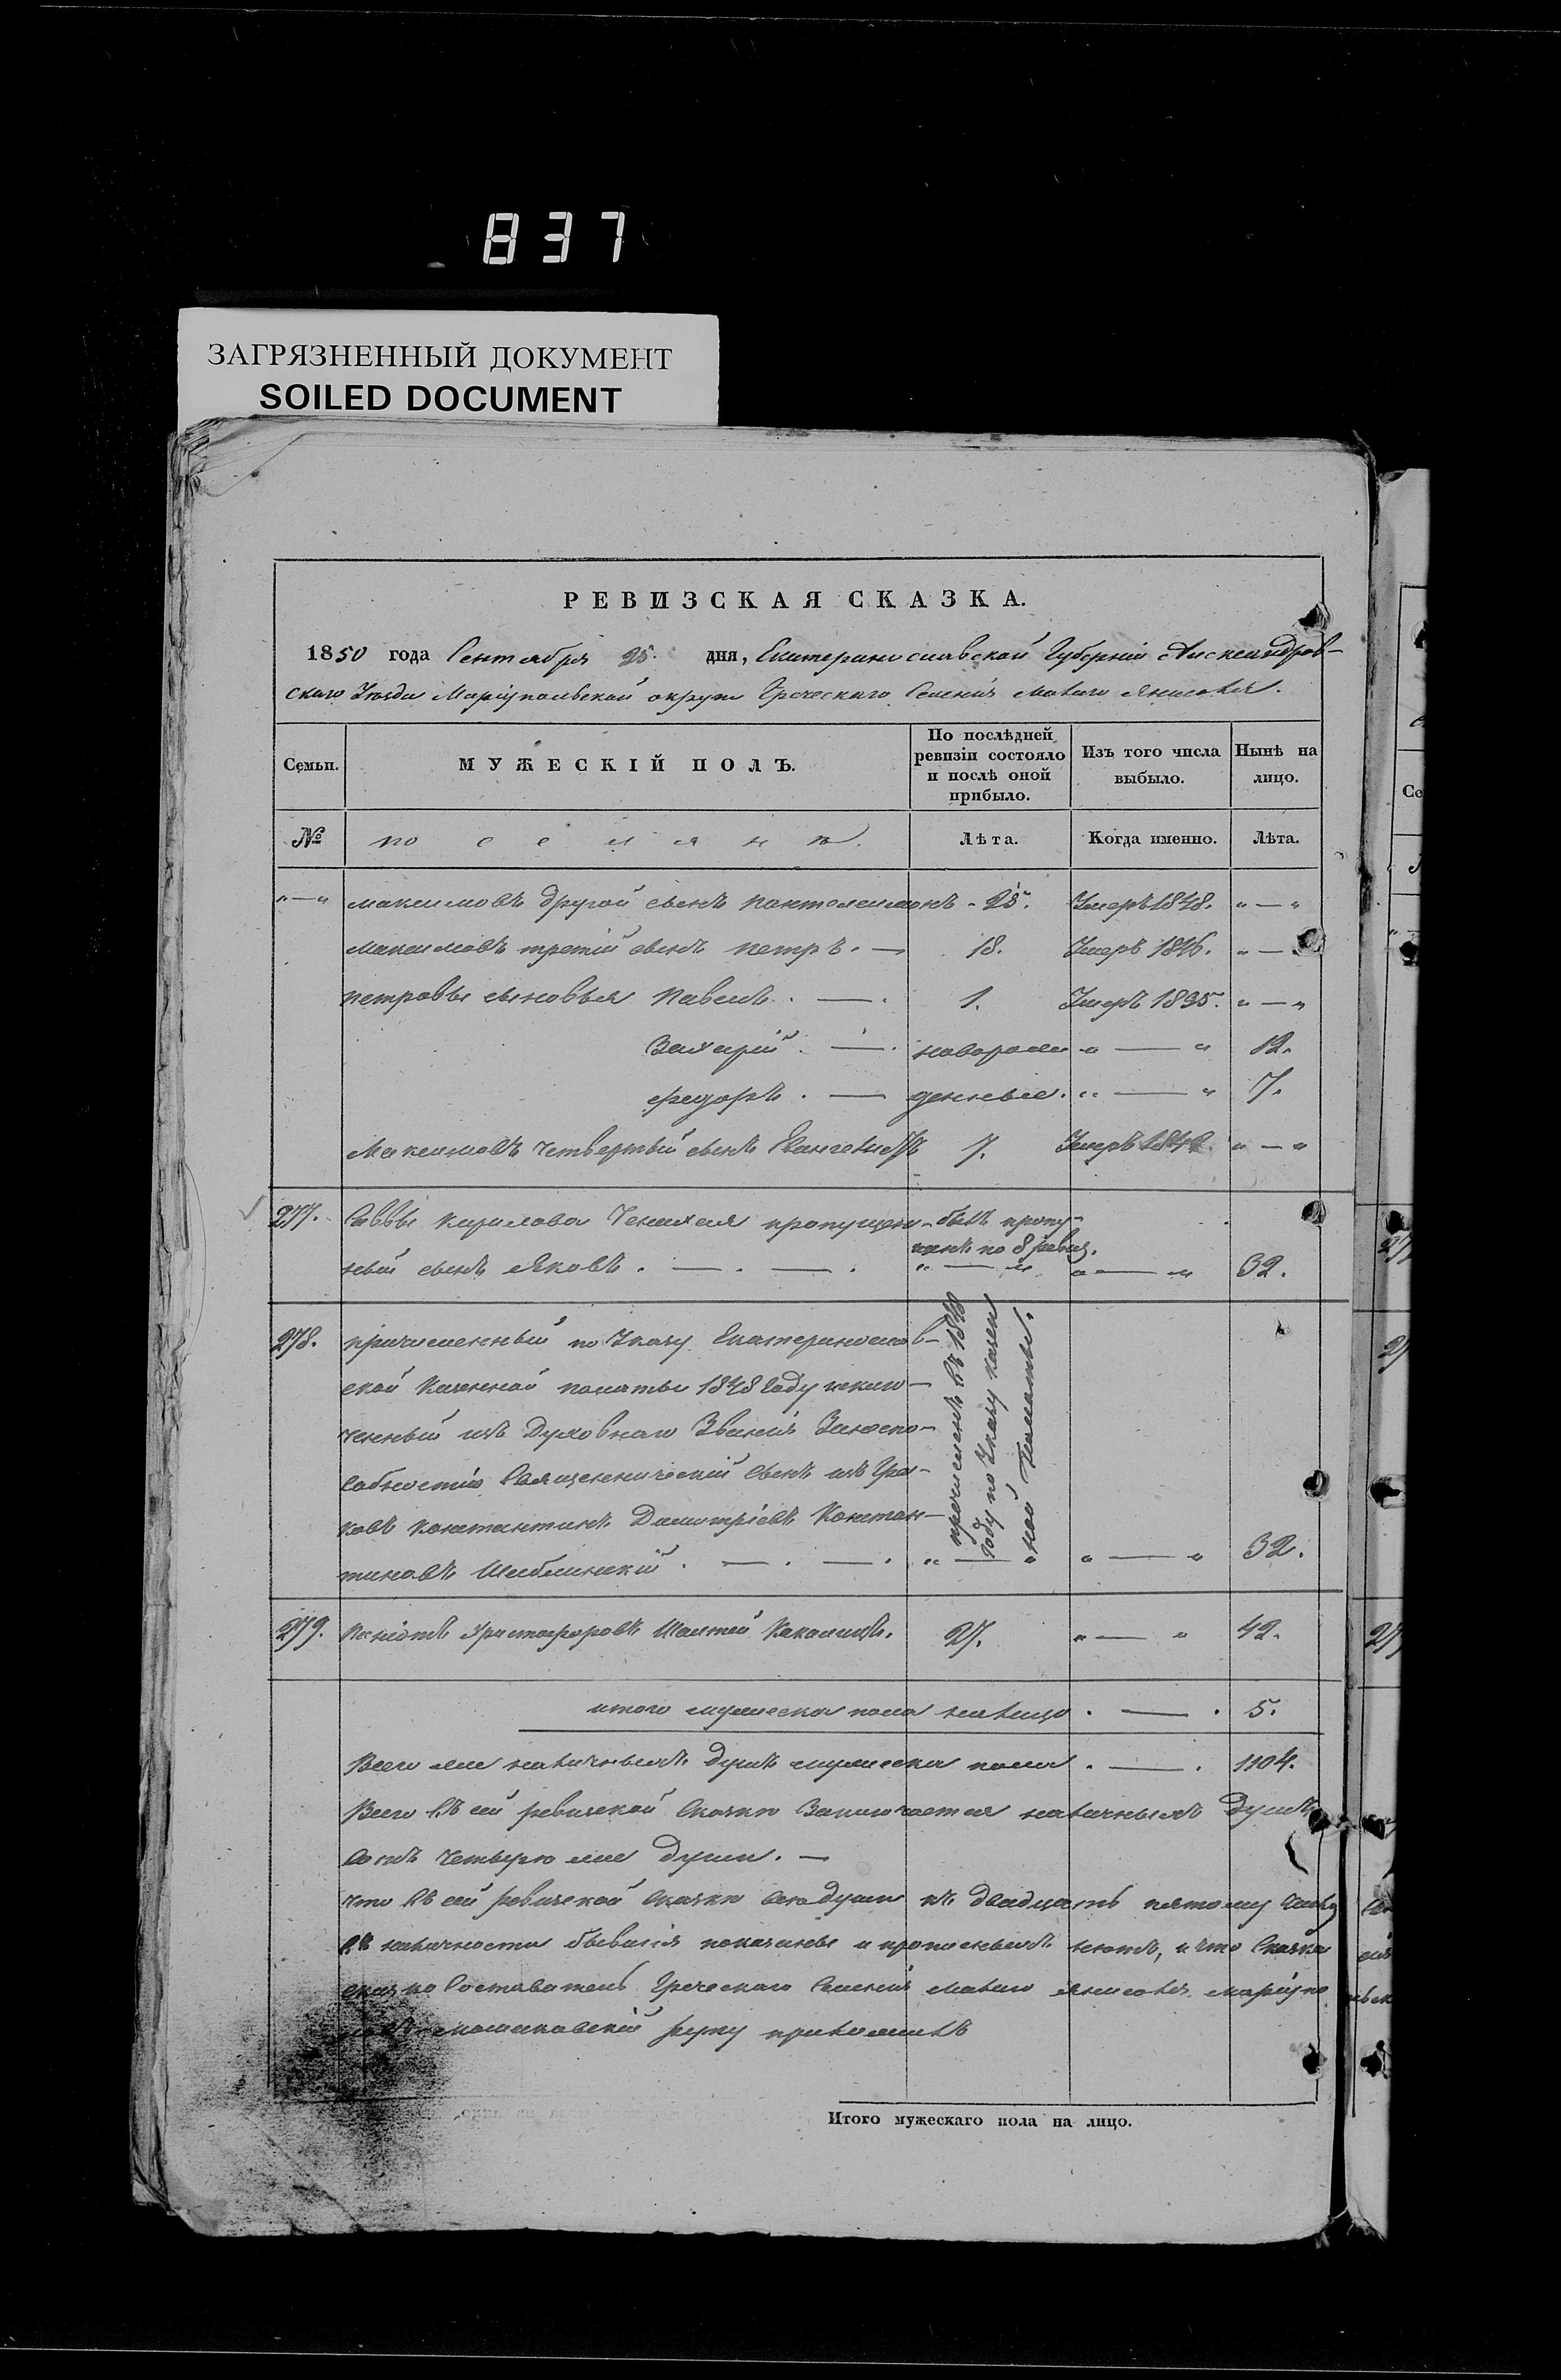 837
ЗАГРЯЗНЕННЫЙ ДОКУМЕНТ
SOILED DOCUMENT
РЕВИЗСКАЯ СКАЗКА.
1850 года Сентября 25. дня, Екатеринославской Губерніи Александров-
скаго Уѣзда Маріупольской округи Греческаго Селенія Малаго Янисоля.
Семьи.
МУЖЕСКІЙ ПОЛЪ.
По послѣдней ревизіи состояло и послѣ оной прибыло.
Изъ того числа выбыло.
Нынѣ на лицо.
№
поселянъ.
Лѣта.
Когда именно.
Лѣта.
"—" Максимовъ другой сынъ Пантелеимонъ - 25. Умеръ 1848. "—"
Максимовъ третій сынъ Петръ. — 18. Умеръ 1846. "—"
Петровы сыновья Павелъ . — . 1. Умеръ 1835. "—"
Захарій . — . новорож "—" 12.
Федоръ . — денные. "—" 7.
Максимовъ четвертый сынъ 7. Умеръ "—"
277. Саввы Кирилова пропущен- былъ пропу-
щенъ по 8 ревиз.
ный сынъ Яковъ . — . — . "—" "—" 32.
278. причисленный по Указу Екатеринослав-
ской Казенной палаты 1848 году исклю-
ченный изъ Духовнаго Званія Занеспо-
собностію Священническій Сынъ изъ Гре-
ковъ Константинъ Димитріевъ Констан-
тиновъ . — . — . "—" "—" 32.
причисленъ въ 1848
году по Указу казен
ной Палаты.
279. Христофоровъ 27. "—" 42.
итого мужеска пола налицо . — . 5.
Всего же наличныхъ душъ мужеска пола . — . 1104.
Всего въ сей ревизской Сказкѣ Заключается наличныхъ Душъ
четыре же души. —
что въ сей ревизской Сказкѣ всѣ души къ двадцать пятому
наличности бывшія показаны и прописныхъ нетъ, и что Сказка
Составатель Греческаго Селенія Малаго Янисоля Маріупо
руку приложилъ
Итого мужескаго пола на лицо.